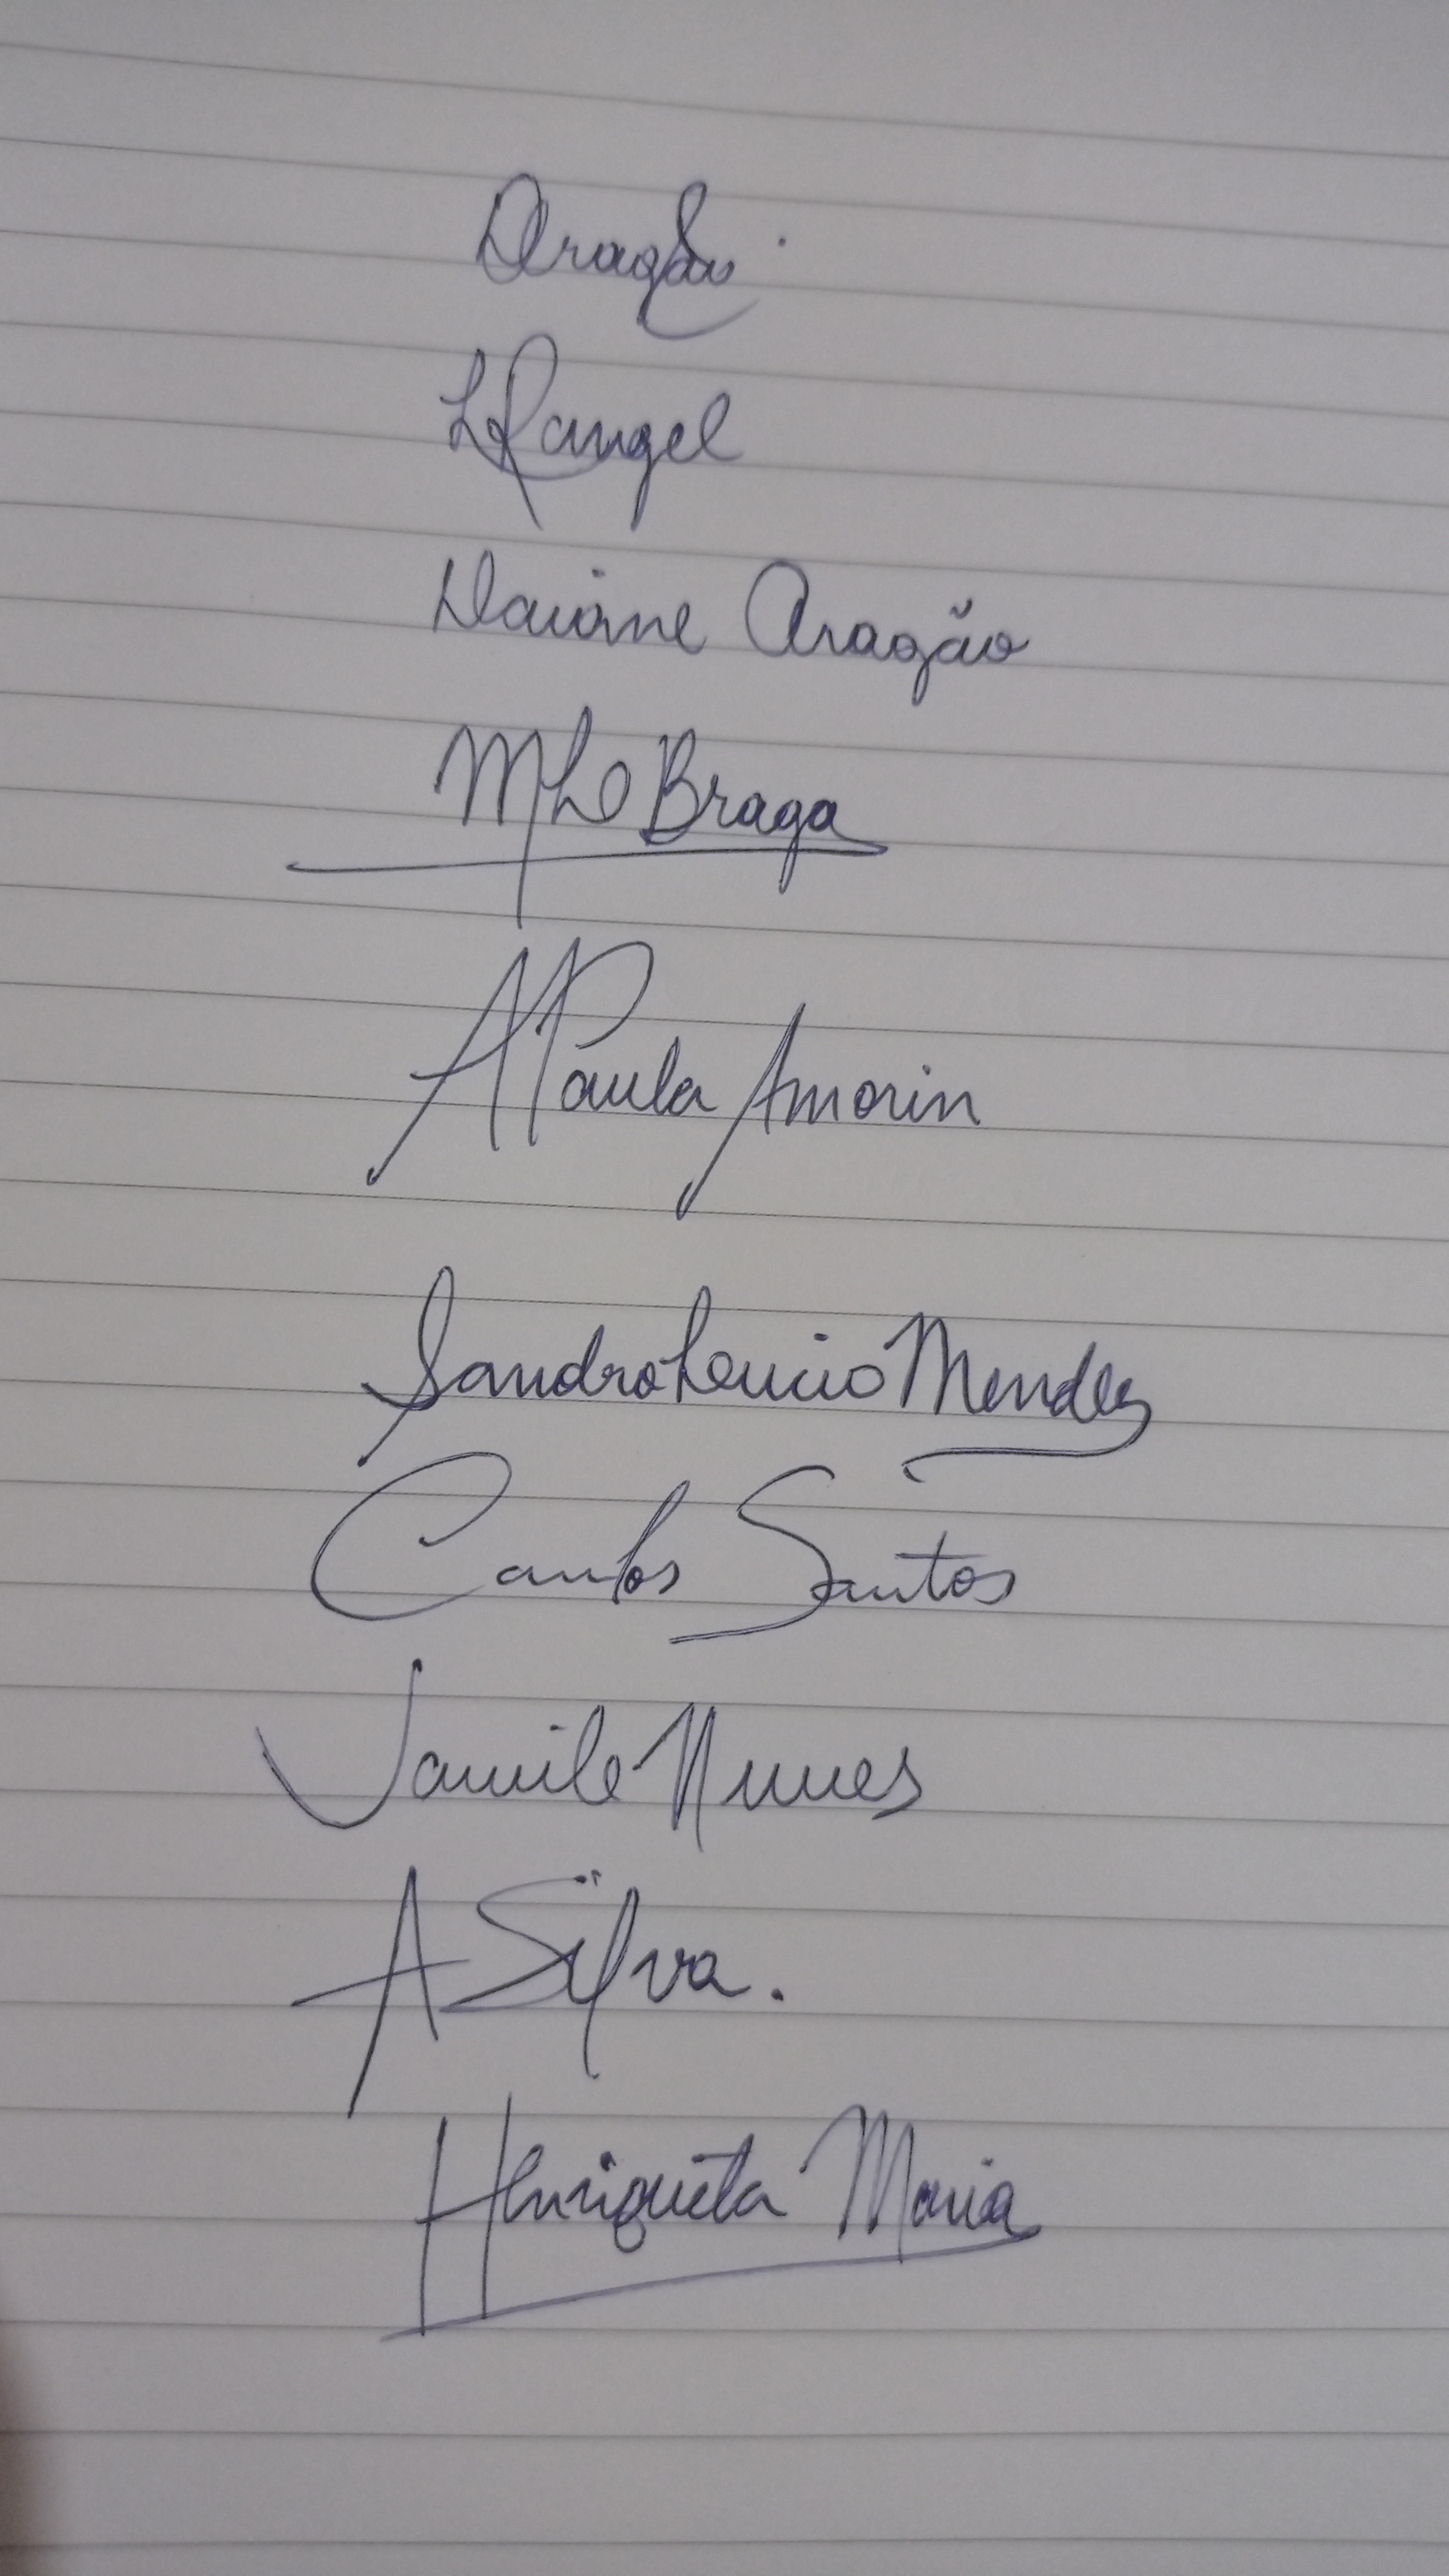 LRangel
Daiane Aragão
MLO Braga
APaula Amorin
Sandro Lucio Mendes
Carlos Santos
Jamile Nunes
A Silva.
Henriqueta Maria